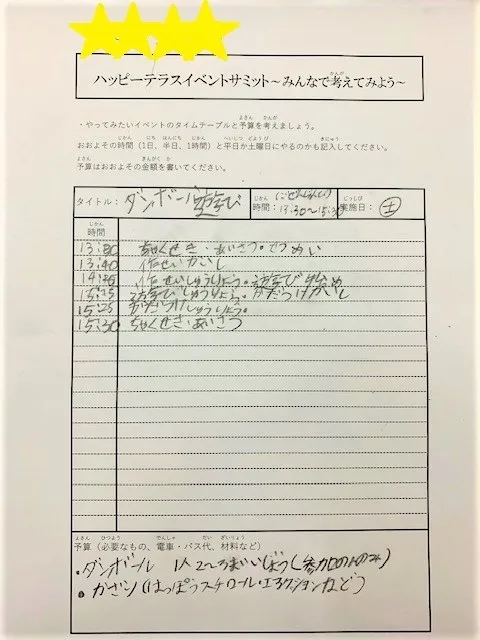 ハッピーテラスイベントサミット～みんなで考えてみよう～
・やってみたいイベントのタイムテーブルと予算を考えましょう。
おおよその時間（1日、半日、1時間）と平日か土曜日にやるのかも記入してください。
予算はおおよその金額を書いてください。
タイトル： ダンボール遊び 時間：13:30～15:30 実施日： 土
時間
13:30 ちゃくせき・あいさつ。せつめい
13:40 作せいかいし
14:25 作せいしゅうりょう。遊び始め
15:15 遊びしゅうりょう。かたづけかいし
15:25 かたづけしゅうりょう。
15:30 ちゃくせき・あいさつ
予算（必要なもの、電車・バス代、材料など）
・ダンボール 1人2～3まいいじょう(参加の人のみ)
・かざり(はっぽうスチロール・エアクションなど)